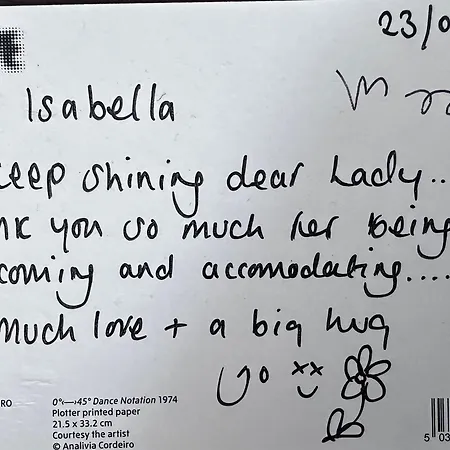 23/0
Isabella
keep shining dear Lady..
nk you so much for being
coming and accomodating....
much love + a big hug
Jo xx
RO
0°<—>45° Dance Notation 1974
Plotter printed paper
21.5 x 33.2 cm
Courtesy the artist
© Analivia Cordeiro
5 03